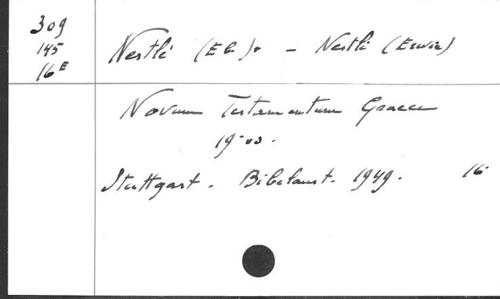 309
145
16E
Nestlé (Eb.). - Nestlé (Erwin)
Novum Testamentum Graece
Stuttgart. Bibelanst. 1949. 16